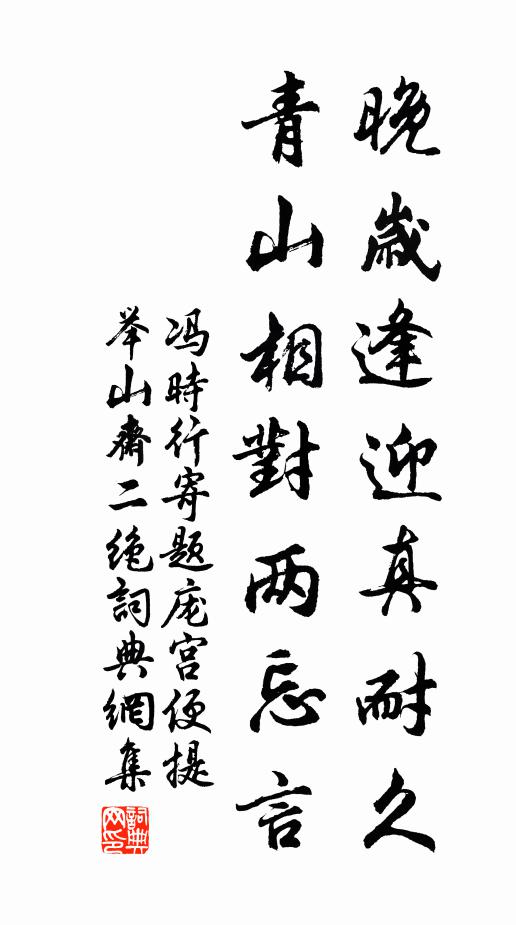 晚歲逢迎真耐久
青山相對两忘言
冯時行寄题庞宫使提
举山齋二绝詞典網集
詞典网印